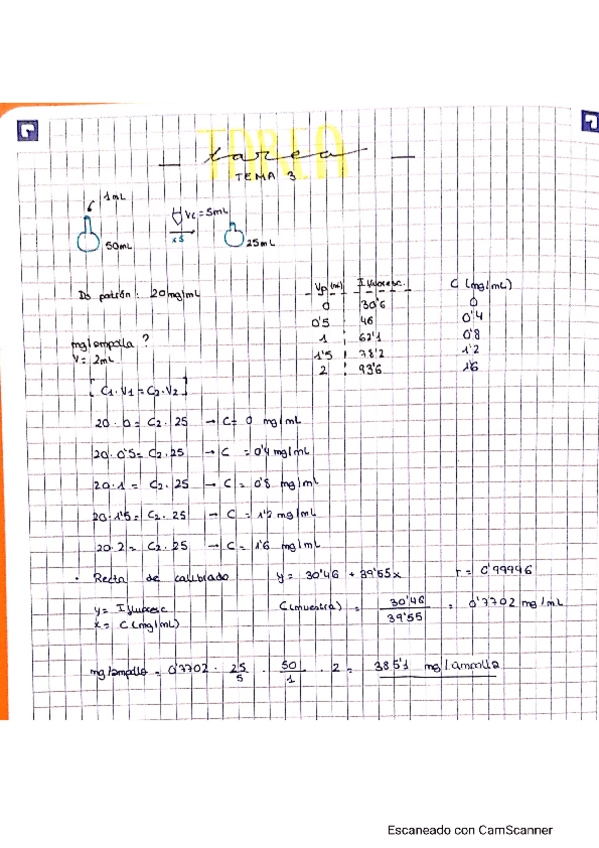 TAREA
tarea
TEMA 3
1mL
50mL
Vc = 5mL
x5
25mL
Ds patrón: 20mg/mL
mg/ampolla?
V = 2mL
Vp (mL) I fluoresc. C (mg/mL)
0 30'6 0
0'5 46 0'4
1 62'1 0'8
1'5 78'2 1'2
2 93'6 1'6
[C1·V1 = C2·V2]
20·0 = C2·25 → C = 0 mg/mL
20·0'5 = C2·25 → C = 0'4 mg/mL
20·1 = C2·25 → C = 0'8 mg/mL
20·1'5 = C2·25 → C = 1'2 mg/mL
20·2 = C2·25 → C = 1'6 mg/mL
· Recta de calibrado y = 30'46 + 39'55x r = 0'99996
y = I fluoresc.
x = C (mg/mL)
C(muestra) = 30'46 / 39'55 = 0'7702 mg/mL
mg/ampolla = 0'7702 · 25/5 · 50/1 · 2 = 385'1 mg/ampolla
Escaneado con CamScanner